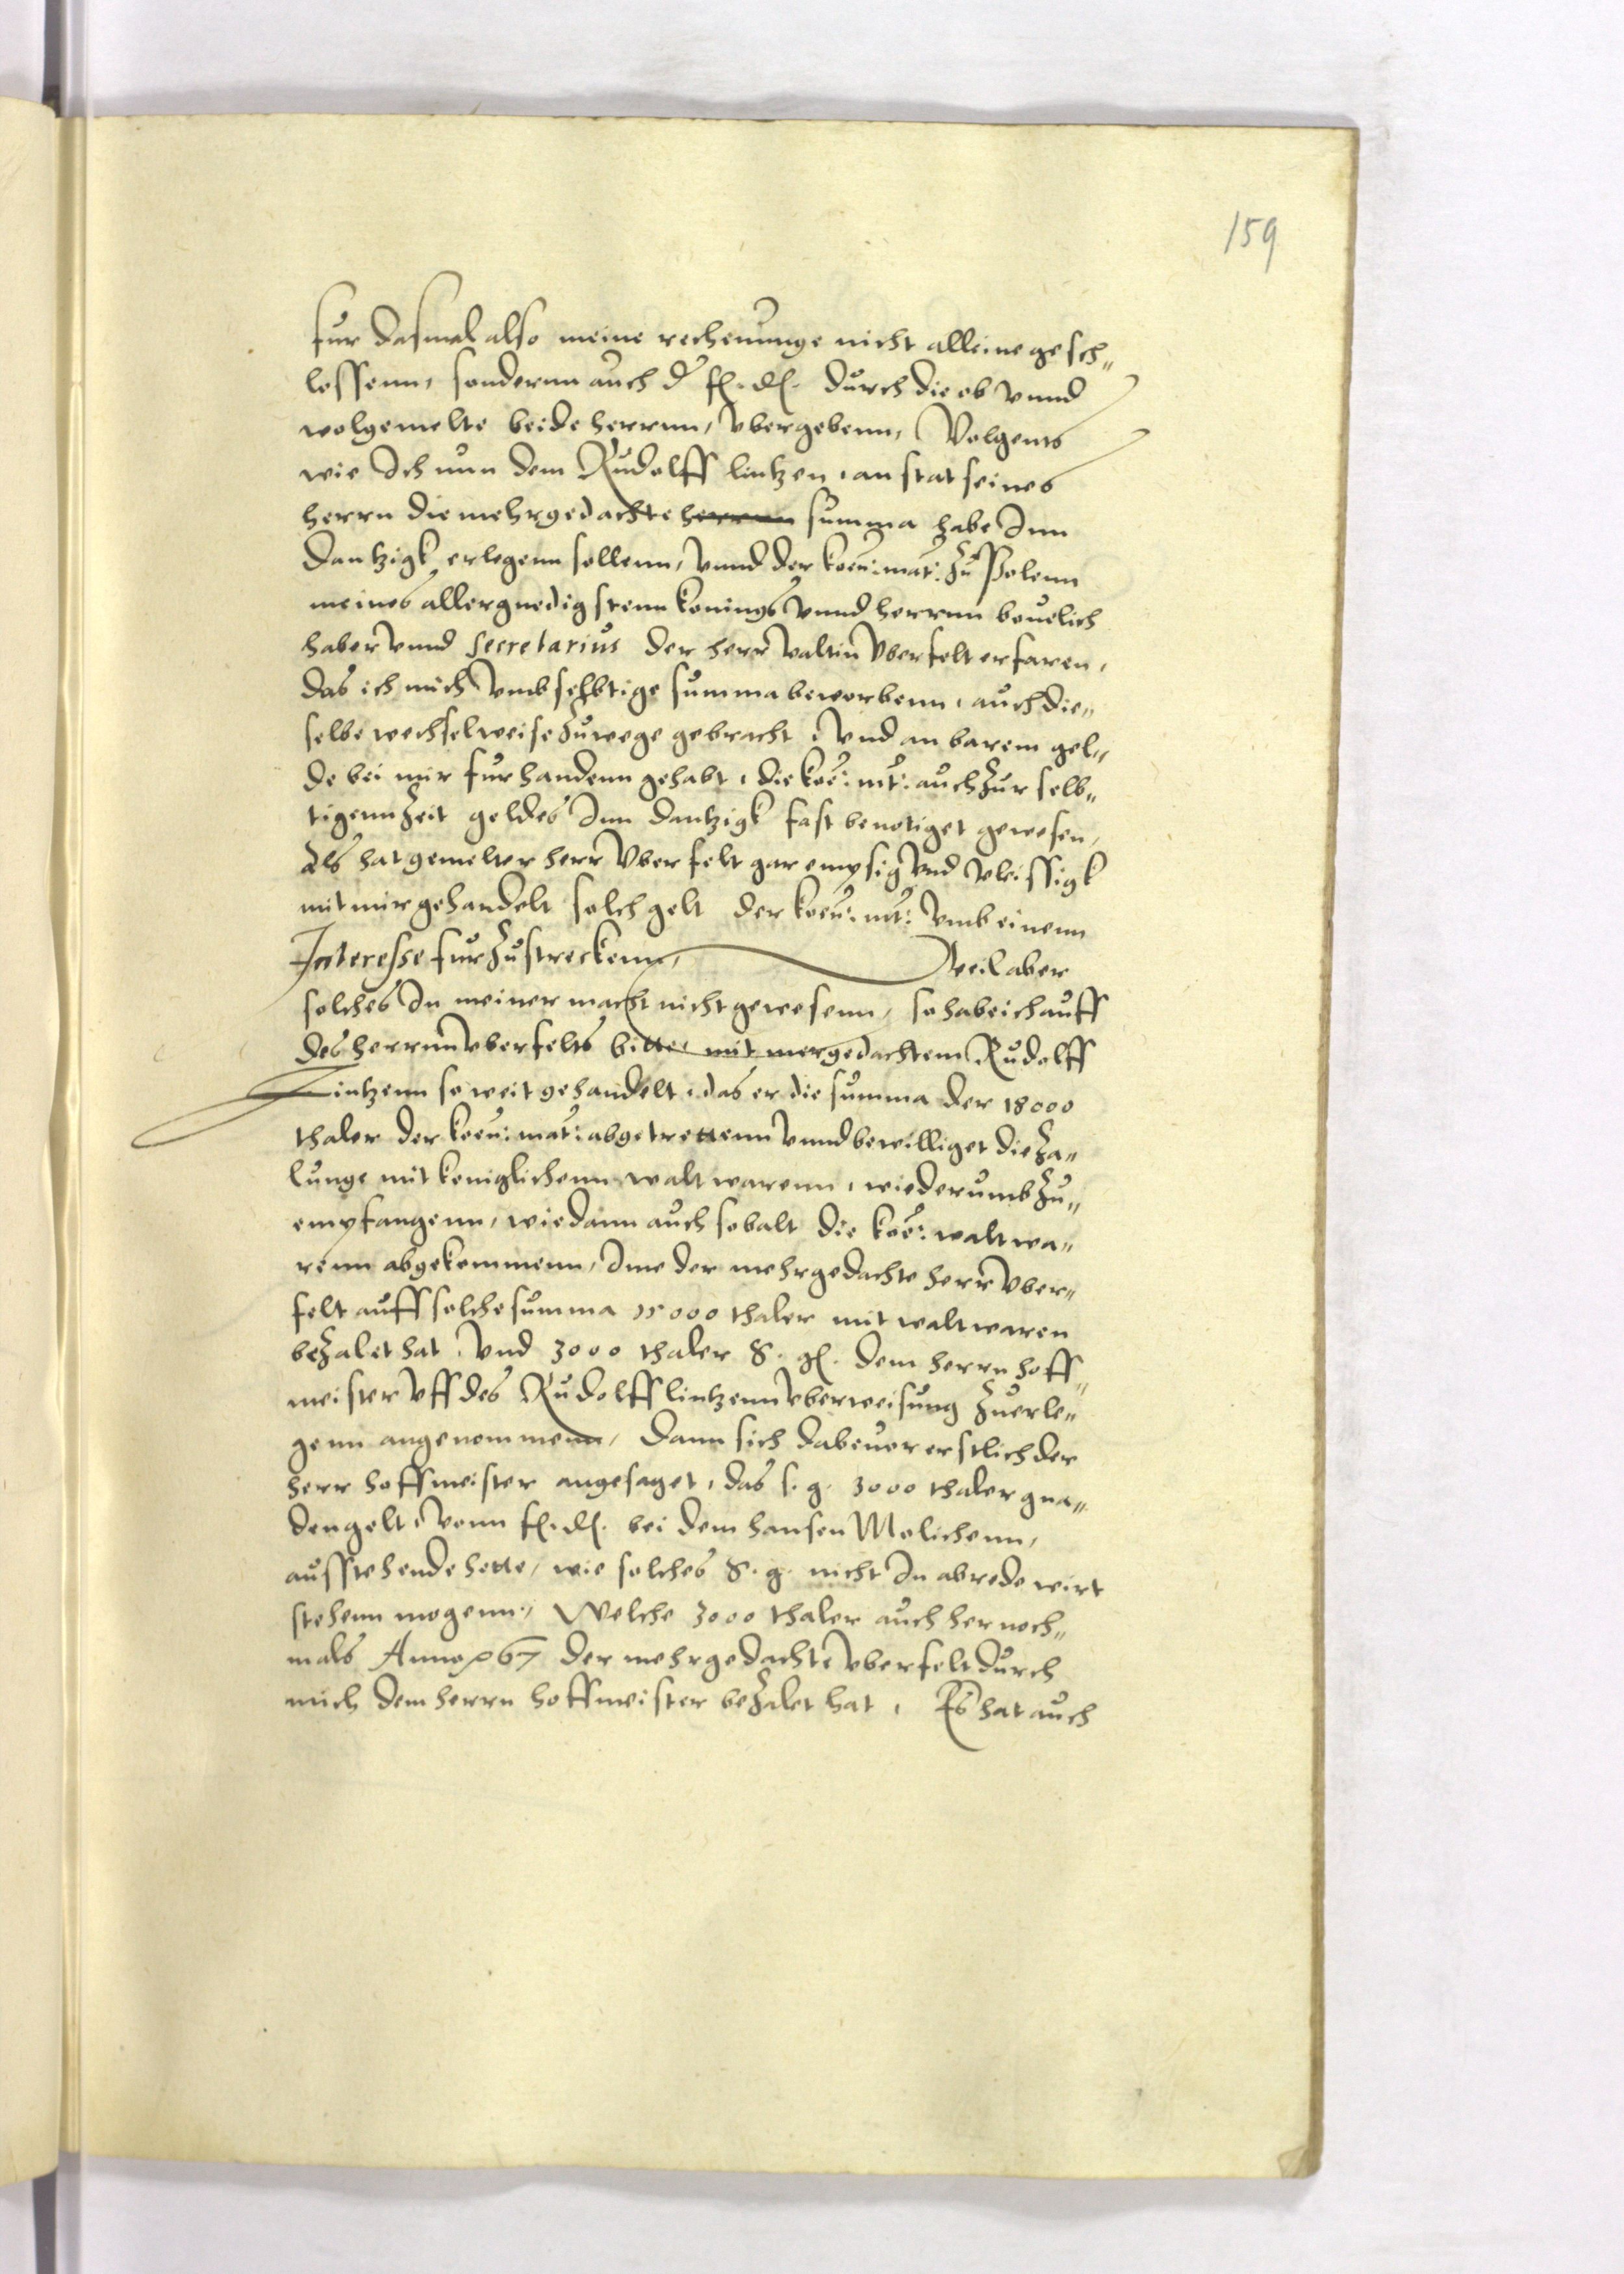 159
fur dasmal also meine rechenunge nicht alleine gesch„
lossenn, sondernn auch d' f. d. durch die ob vnnd
wolgemelte beide herrnn, vbergebenn, Volgents
wie Ich nun dem Rudolff lintzen, an stat seines
herrn die mehrgedachte herrnn summa habe Inn
Dantzigk erlegenn sollenn, vnnd der koen: mat: zu Polenn
meines allergnedigstenn konings vnnd herrnn beuelich
haber vnnd Secretarius der herr valtin vberfelt erfaren,
das ich mich vmb selbtige summa beworbenn, auch die„
selbe wechselweise zuwege gebracht, vnd an barem gel„
de bei mir furhandenn gehabt, die koe: mt: auch zur selb„
tigenn zeit geldes Inn dantzigk fast benotiget gewesen,
Als hat gemelter herr vberfelt gar empsig vnd vleissigk
mit mir gehandelt solch gelt der koen: mt: vmb einenn
Interesse furzustreckenn, Weil aber
solches In meiner macht nicht gewesenn, so habe ich auff
des herrnn vberfelts bitte mit mergedachtem Rudolff
Lintzenn so weit gehandelt, das er die summa der 18000
thaler der koen: mat: abgetrettenn vnnd bewilliget die za„
lunge mit koniglichenn waltwarenn, wiederumb zu„
empfangenn, wie dann auch sobalt die koe: waltwa„
renn abgekommenn, Ime der mehrgedachte herr vber„
felt auff solche summa 15000 thaler mit waltwaren
bezalet hat, vnd 3000 thaler S. g. dem herrn hoff„
meister vff des Rudolff lintzenn vberweisung zuerle„
genn angenommenn, Dann sich dabeuor erstlich der
herr hoffmeister angesaget, das s. g. 3000 thaler gna„
dengelt, vonn f. d. bei dem hansen Molichenn,
ausstehende hette, wie solches S. g. nicht In abrede wirt
stehenn mogenn, Welche 3000 thaler auch hernoch„
mals Anno 67 der mehrgedachte vberfelt durch
mich dem herrn hoffmeister bezalet hat, Es hat auch